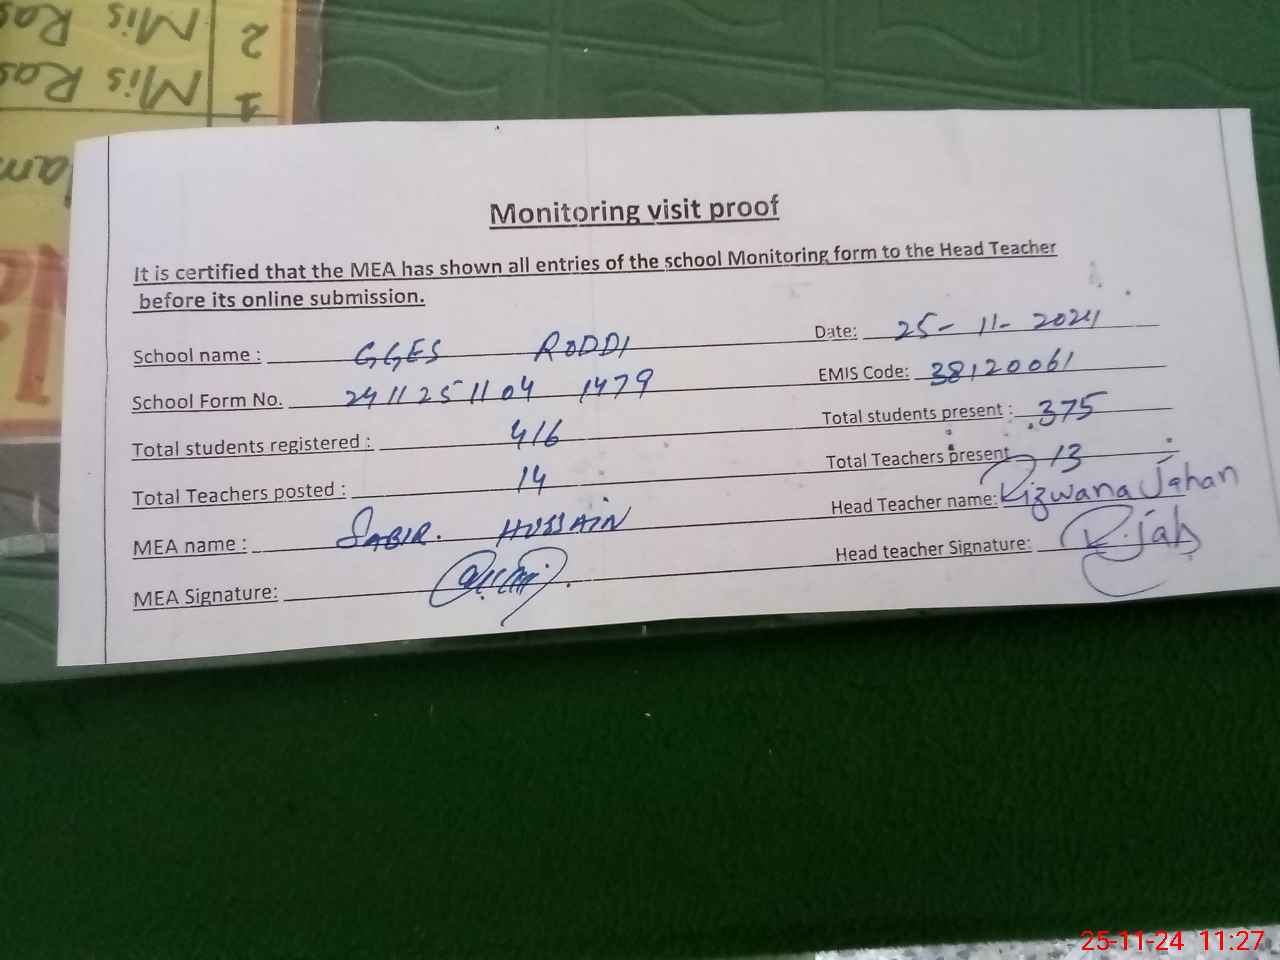 2 Mis Ras
1 Mis Ras
Monitoring visit proof
It is certified that the MEA has shown all entries of the school Monitoring form to the Head Teacher
before its online submission.
School name : GGES RODDI Date: 25-11-2024
School Form No. 2411251104 1479 EMIS Code: 38120061
Total students registered : 416 Total students present : 375
Total Teachers posted : 14 Total Teachers present 13
MEA name : SABIR. HUSSAIN Head Teacher name: Rizwana Jahan
MEA Signature: Head teacher Signature: R.jah
25-11-24 11:27